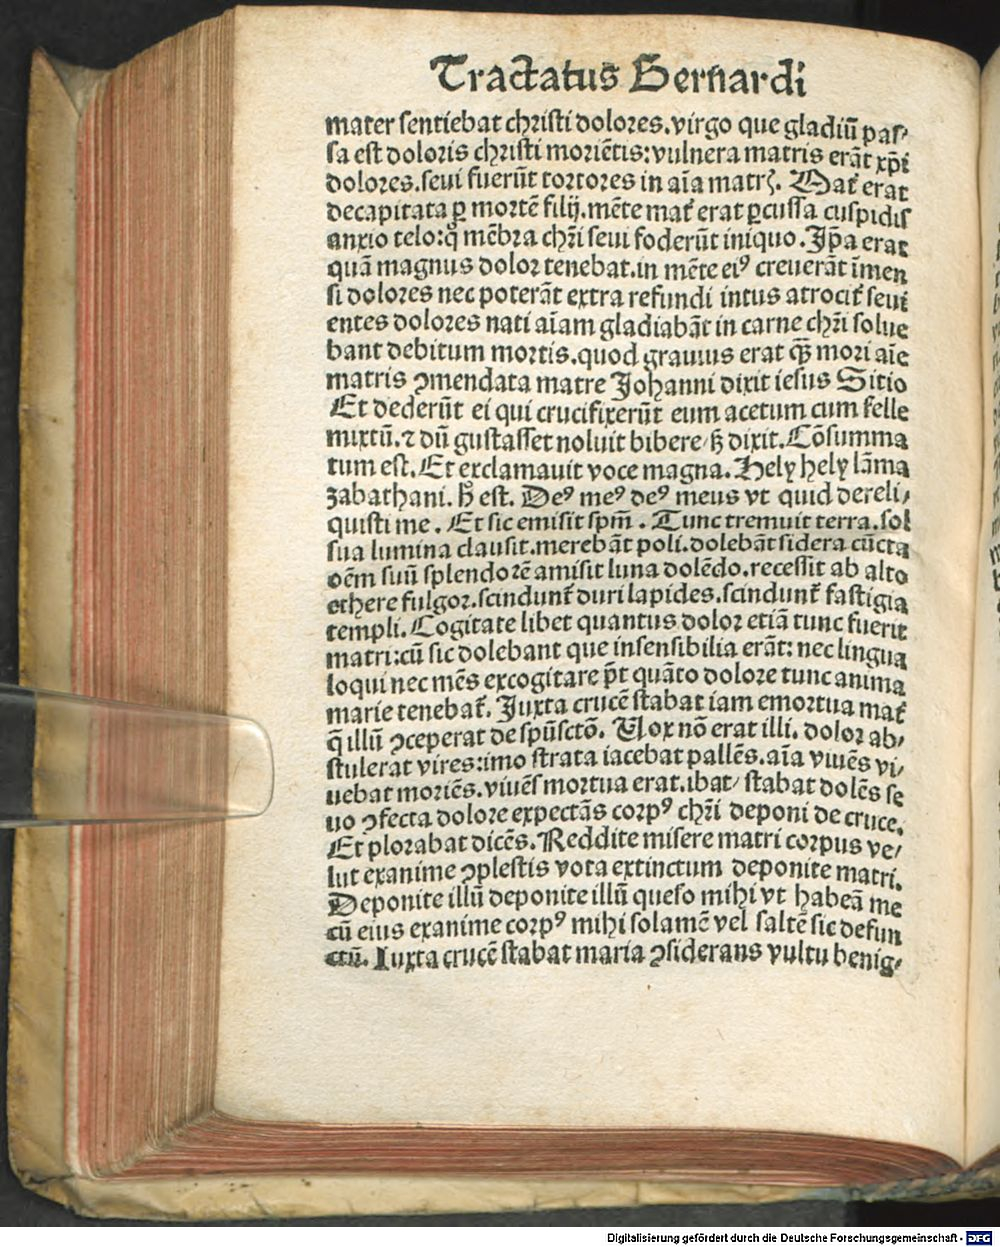 Tractatus Bernardi
mater ſentiebat chꝛiſti doloꝛes.virgo que gladiū paſ⸗
ſa eſt doloꝛis chꝛiſti moriētis:vulnera matris erāt xp̄i
doloꝛes.ſeui fuerūt toꝛtoꝛes in aīa matrꝭ. Mat̄ erat
decapitata ꝑ moꝛtē filij.mēte mat̄ erat ꝑcuſſa cuſpidis
anxio telo:q̄ mēbꝛa chꝛ̄i ſeui foderūt iniquo.Ip̄a erat
quā magnus doloꝛ tenebat.in mēte eiꝰ creuerāt īmen
ſi doloꝛes nec poterāt extra refundi intus atrocit̄ ſeui
entes doloꝛes nati aīam gladiabāt in carne chꝛ̄i ſolue
bant debitum moꝛtis.quod grauius erat qꝫ̄ moꝛi aīe
matris ꝯmendata matre Johanni dixit ieſus Sitio
Et dederūt ei qui crucifixerūt eum acetum cum felle
mixtū.⁊ dū guſtaſſet noluit bibere/ſꝫ dixit.Cōſumma
tum eſt.Et exclamauit voce magna.Hely hely lāma
ʒabathani. h̄ eſt. Deꝰ meꝰ deꝰ meus vt quid dereli⸗
quiſti me.Et ſic emiſit ſpm̄.Tunc tremuit terra.ſol
ſua lumina clauſit.merebāt poli.dolebāt ſidera cūcta
oēm ſuū ſplendoꝛē amiſit luna dolēdo.receſſit ab alto
ethere fulgoꝛ.ſcindunt̄ duri lapides.ſcindunt̄ faſtigia
templi.Cogitate libet quantus doloꝛ etiā tunc fuerit
matri:cū ſic dolebant que inſenſibilia erāt: nec lingua
loqui nec mēs excogitare p̄t quāto doloꝛe tunc anima
marie tenebat̄.Juxta crucē ſtabat iam emoꝛtua mat̄
q̄ illū ꝯceperat de ſpūſctō. Vox nō erat illi. doloꝛ ab⸗
ſtulerat vires:imo ſtrata iacebat pallēs.aīa viuēs vi⸗
uebat moꝛiēs.viuēſ moꝛtua erat.ibat/ſtabat dolēs ſe
uo ꝯfecta doloꝛe expectās coꝛpꝰ chꝛ̄i deponi de cruce.
Et ploꝛabat dicēs.Reddite miſere matri coꝛpus ve⸗
lut exanime ꝯpleſtis vota extinctum deponite matri.
Deponite illū deponite illū queſo mihi vt habeā me
cū eius exanime coꝛpꝰ mihi ſolamē vel ſaltē ſic defun
ctū. Iuxta crucē ſtabat maria ꝯſiderans vultū benig⸗
Digitalisierung gefördert durch die Deutsche Forschungsgemeinschaft - DFG